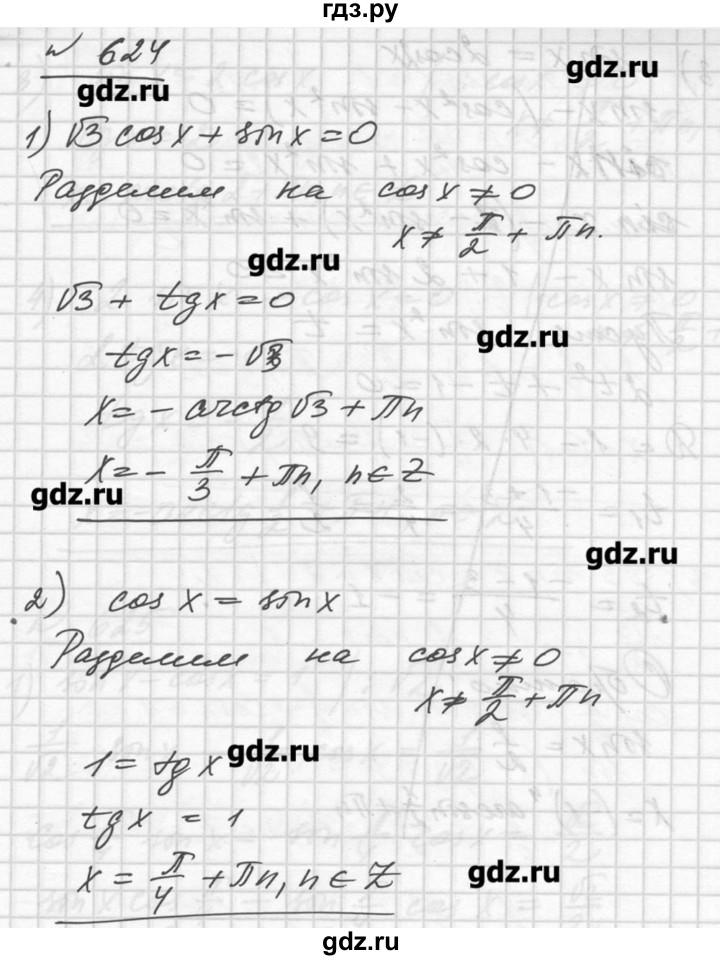 гдз.ру
№ 624
gdz.ru
gdz.ru
1) √3 cos x + sin x = 0
Разделим на cos x ≠ 0
x ≠ π/2 + πn.
gdz.ru
√3 + tg x = 0
gdz.ru
tg x = - √3
x = - arctg √3 + πn
x = - π/3 + πn, n ∈ Z
gdz.ru
gdz.ru
2) cos x = sin x
Разделим на cos x ≠ 0
x ≠ π/2 + πn
1 = tg x
gdz.ru
tg x = 1
x = π/4 + πn, n ∈ Z
gdz.ru
gdz.ru